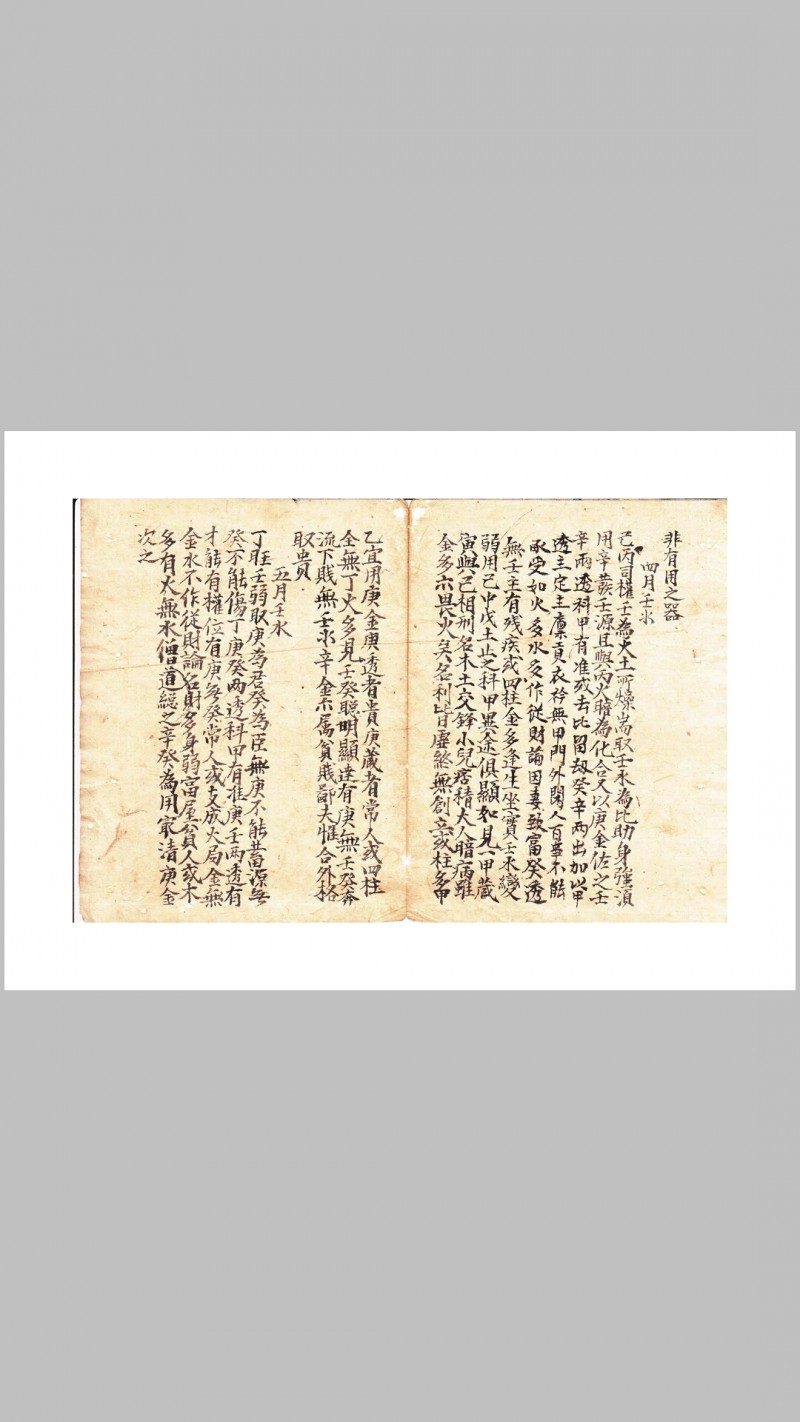 非有用之器
四月壬水
己丙司權壬為火土所燥耑取壬水為比助身強湏
用辛癸壬源且與丙火暗為化合又以庚金佐之壬
辛兩透科甲有准或去比留刼癸辛兩出加以甲
透主定主廪貢衣衿無甲門外閑人百事不能
承受如火多水多作從財論因妻致富癸透
無壬主有残疾或四柱金多逢生坐實壬水變
弱用己中戊土止之科甲異途俱顯如見一甲蔵
寅與己相刑名木土交鋒小兒痞積大人暗病雖
金多亦畏火矣名利皆虛終無創立或柱多甲
乙宜用庚金庚透者貴庚蔵者常人或四柱
全無丁火多見壬癸聰明顯達有庚無壬癸奔
流下賎無壬水辛金亦属貧賎鄙夫惟合外格
取貴
五月壬水
丁旺壬弱取庚為君癸為臣無庚不能蓄源無
癸不能傷丁庚癸兩透科甲有准庚壬兩透有
才能有權位有庚無癸常人或支成火局金無
金水不作從財論名財多身弱富屋貧人或木
多有火無水僧道総之辛癸為用㝡清庚金
次之